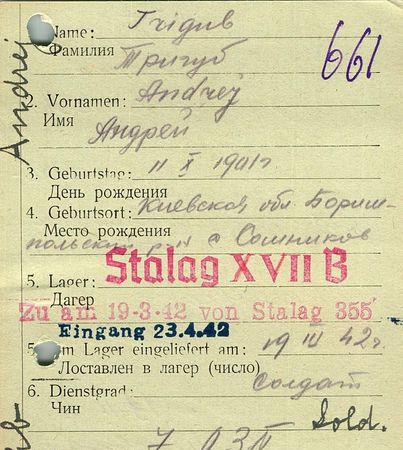 Name: Trigub
661
Фамилия
Тригуб
Andrej
2. Vornamen: Andrej
Имя
Андрей
3. Geburtstag: 11 X 1901 г
День рождения
4. Geburtsort: Киевская обл. Бориш-
Место рождения
польский р-н с Сошников
5. Lager: Stalag XVII B
Лагер
Zu am 19-3-42 von Stalag 355
Eingang 23.4.42
5. Im Lager eingeliefert am: 19 III 42 г.
Доставлен в лагер (число)
6. Dienstgrad: солдат
Чин
Sold.